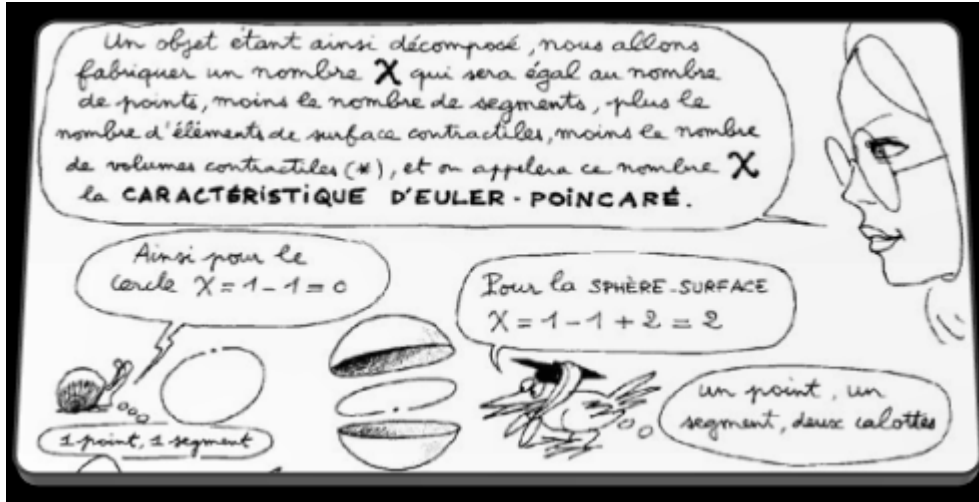 Un objet étant ainsi décomposé, nous allons
fabriquer un nombre χ qui sera égal au nombre
de points, moins le nombre de segments, plus le
nombre d'éléments de surface contractiles, moins le nombre
de volumes contractiles (*), et on appelera ce nombre χ
la CARACTÉRISTIQUE D'EULER-POINCARÉ.
Ainsi pour le
cercle χ = 1 - 1 = 0
Pour la SPHÈRE-SURFACE
χ = 1 - 1 + 2 = 2
1 point, 1 segment
un point, un
segment, deux calottes